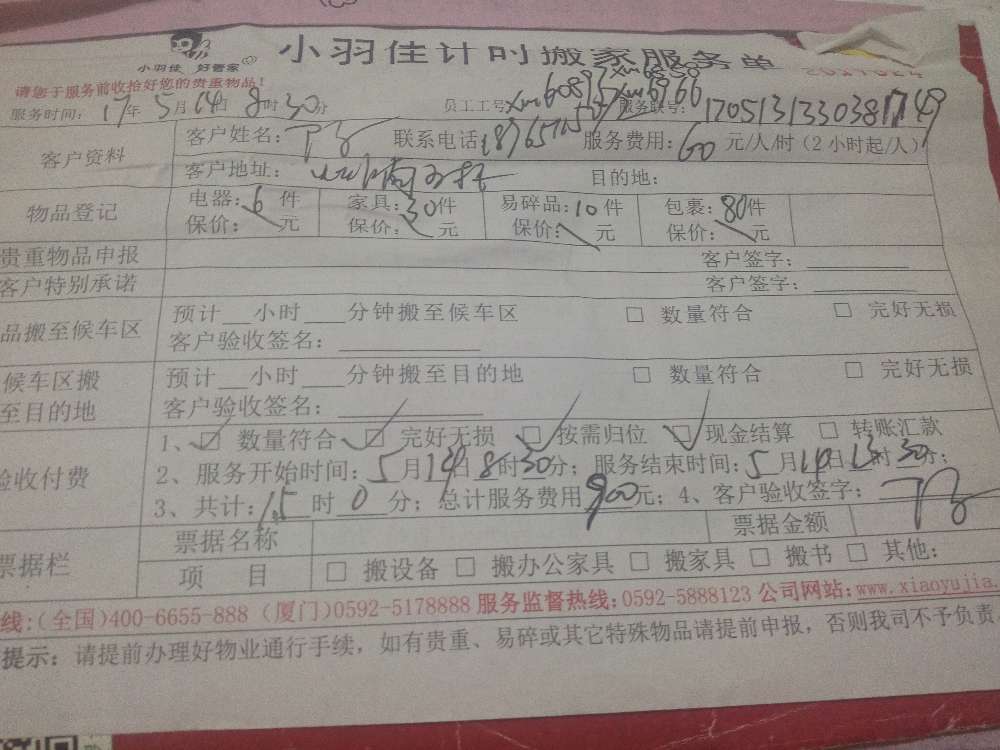 小羽佳 好管家
小羽佳计时搬家服务单
请您于服务前收拾好您的贵重物品!
服务时间: 17年5月14日8时30分 员工工号: 服务联号:
客户资料 客户姓名: 联系电话: 服务费用: 60 元/人/时(2小时起/人)
客户地址: 目的地:
物品登记 电器: 6件 家具: 30件 易碎品: 10件 包裹: 80件
保价: 元 保价: 元 保价: 元 保价: 元
贵重物品申报 客户签字:
客户特别承诺 客户签字:
品搬至候车区 预计__小时___分钟搬至候车区 □ 数量符合 □ 完好无损
客户验收签名:
候车区搬至目的地 预计__小时___分钟搬至目的地 □ 数量符合 □ 完好无损
客户验收签名:
验收付费 1、☑ 数量符合 ☑ 完好无损 ☑ 按需归位 ☑ 现金结算 □ 转账汇款
2、服务开始时间: 5月14日8时30分; 服务结束时间: 5月14日13时30分;
3、共计: 15时0分; 总计服务费用900元; 4、客户验收签字:
票据栏 票据名称 票据金额
项 目 □ 搬设备 □ 搬办公家具 □ 搬家具 □ 搬书 □ 其他:
线:(全国)400-6655-888 (厦门)0592-5178888 服务监督热线:0592-5888123 公司网站:www.xiaoyujia.
提示: 请提前办理好物业通行手续,如有贵重、易碎或其它特殊物品请提前申报,否则我司不予负责